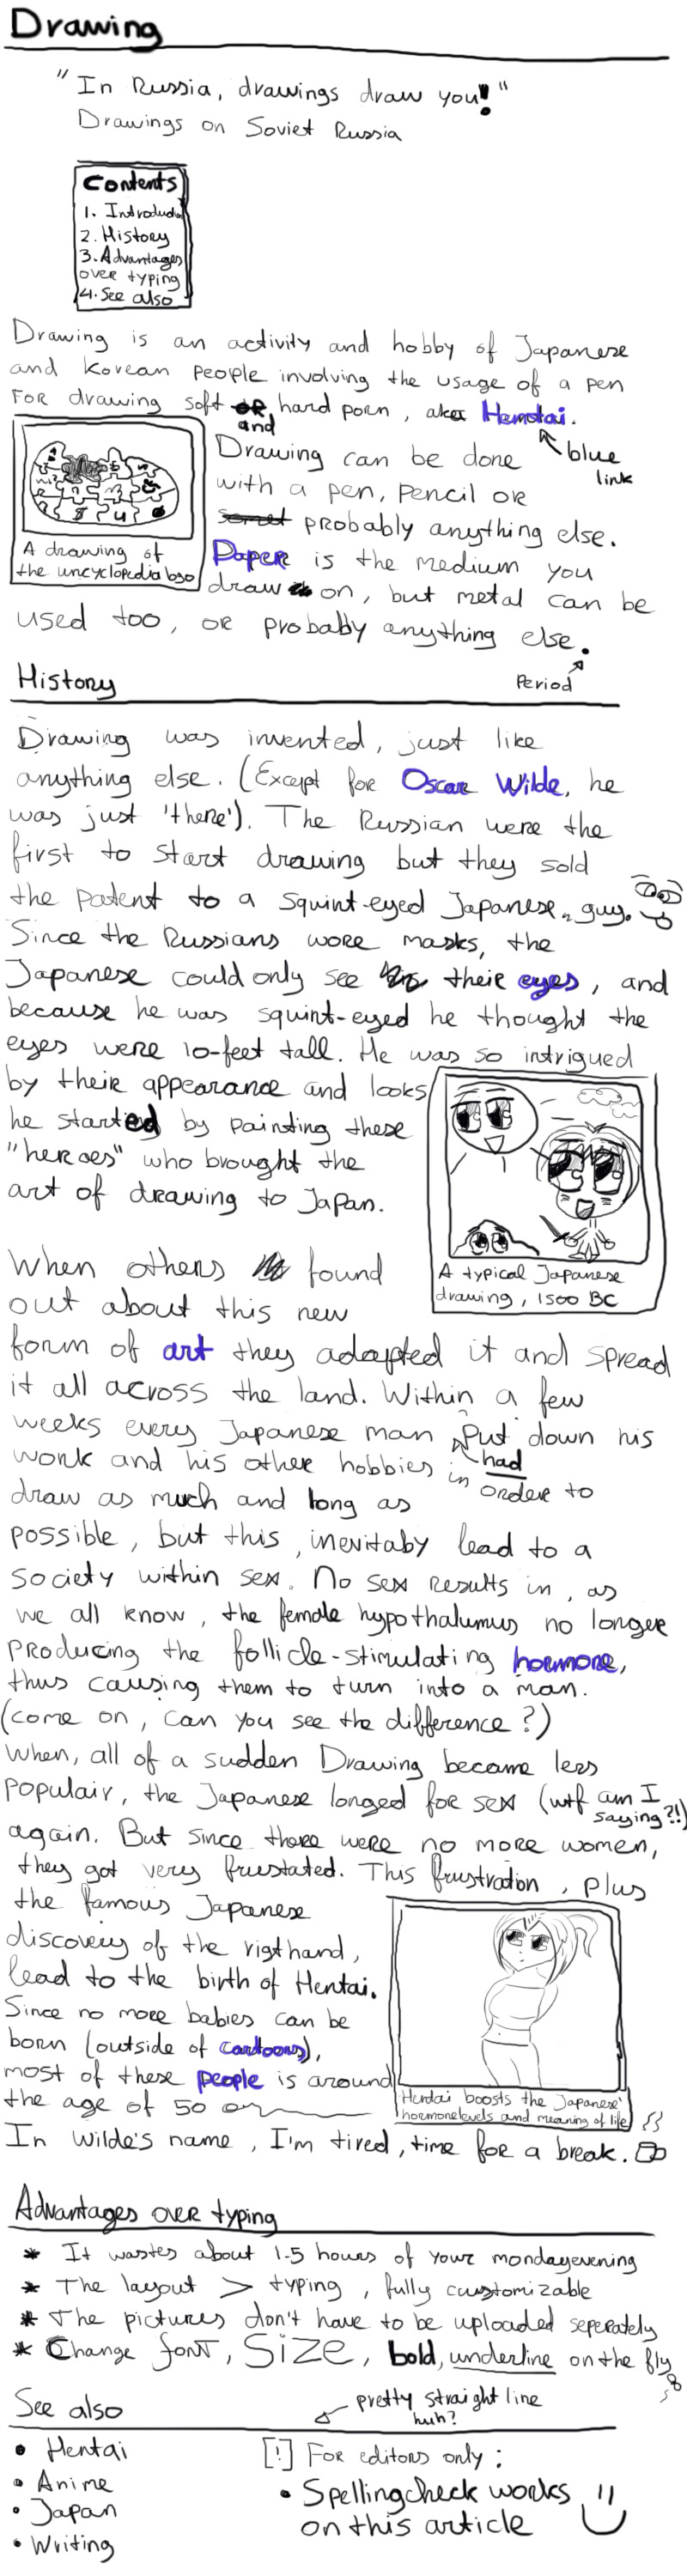 Drawing
"In Russia, drawings draw you!"
Drawings on Soviet Russia
Contents
1. Introduction
2. History
3. Advantages
over typing
4. See also
Drawing is an activity and hobby of Japanese
and Korean people involving the usage of a pen
For drawing soft and hard porn, aka Hentai.
blue
link
Drawing can be done
with a pen, pencil or
probably anything else.
Paper is the medium you
draw on, but metal can be
used too, or probably anything else.
Period
A drawing of
the uncyclopedia logo
History
Drawing was invented, just like
anything else. (Except for Oscar Wilde, he
was just 'there'). The Russian were the
first to start drawing but they sold
the patent to a squint-eyed Japanese guy.
Since the Russians wore masks, the
Japanese could only see their eyes, and
because he was squint-eyed he thought the
eyes were 10-feet tall. He was so intrigued
by their appearance and looks
he started by painting these
"heroes" who brought the
art of drawing to Japan.
A typical Japanese
drawing, 1500 BC
When others found
out about this new
form of art they adapted it and spread
it all across the land. Within a few
weeks every Japanese man had put down his
work and his other hobbies in order to
draw as much and long as
possible, but this, inevitaby lead to a
society within sex. No sex results in, as
we all know, the female hypothalumus no longer
producing the follicle-stimulating hormone,
thus causing them to turn into a man.
(come on, can you see the difference?)
When, all of a sudden Drawing became less
populair, the Japanese longed for sex (wtf am I
saying?!)
again. But since there were no more women,
they got very frustated. This frustration, plus
the famous Japanese
discovery of the rigthand,
lead to the birth of Hentai.
Since no more babies can be
born (outside of cartoons),
most of these people is around
the age of 50 or
Hentai boosts the Japanese'
hormonelevels and meaning of life
In Wilde's name, I'm tired, time for a break.
Advantages over typing
* It wastes about 1.5 hours of your mondayevening
* The layout > typing, fully customizable
* The pictures don't have to be uploaded seperately
* Change font, size, bold, underline on the fly
See also
pretty straight line
huh?
• Hentai
• Anime
• Japan
• Writing
[!] For editors only:
• Spellingcheck works
on this article